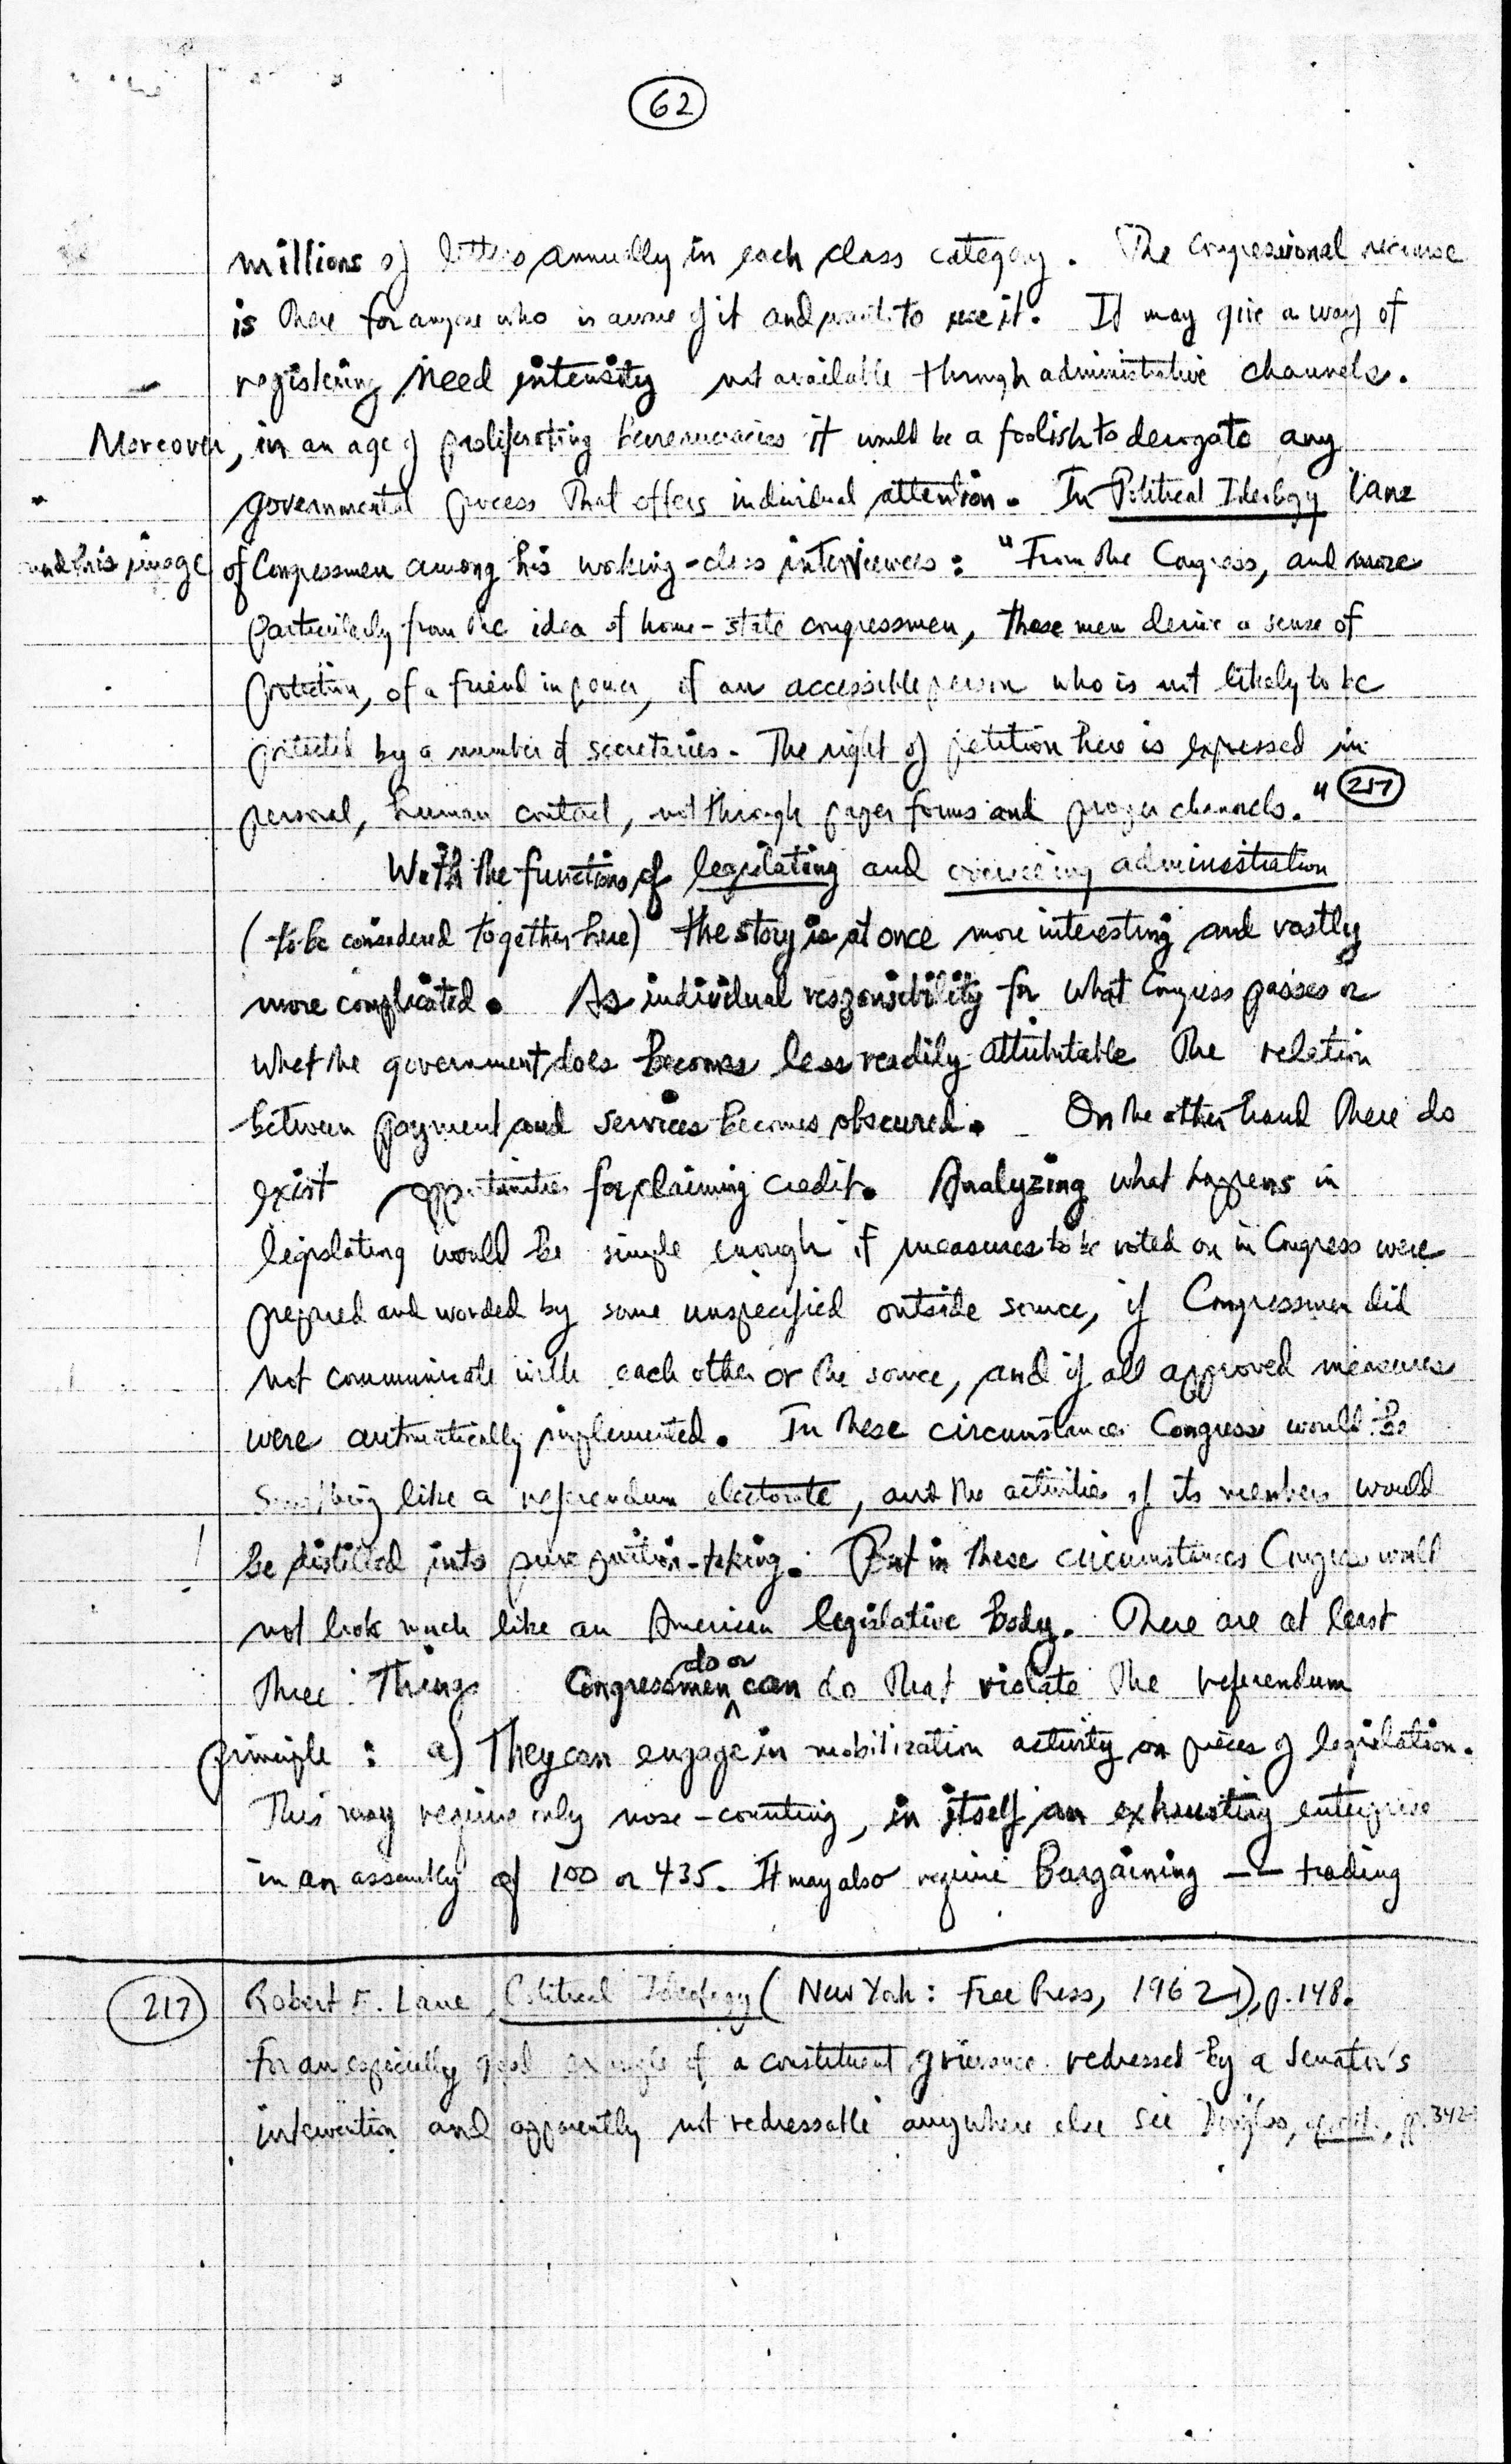 62
millions of letters annually in each class category. The Congressional recourse
is there for anyone who is aware of it and wants to use it. It may give a way of
registering need intensity not available through administrative channels.
Moreover, in an age of proliferating bureaucracies it would be a foolish to derogate any
governmental process that offers individual attention. In Political Ideology Lane
finds this image of Congressmen among his working-class interviewees: "From the Congress, and more
particularly from the idea of home-state congressmen, these men derive a sense of
protection, of a friend in power, of an accessible person who is not likely to be
protected by a number of secretaries. The right of petition here is expressed in
personal, human contact, not through paper forms and proper channels." 217
With the functions of legislating and overseeing administration
(to be considered together here) the story is at once more interesting and vastly
more complicated. As individual responsibility for what Congress passes or
what the government does becomes less readily attributable the relation
between payment and services becomes obscured. On the other hand there do
exist opportunities for claiming credit. Analyzing what happens in
legislating would be simple enough if measures to be voted on in Congress were
prepared and worded by some unspecified outside source, if Congressmen did
not communicate with each other or the source, and if all approved measures
were automatically implemented. In these circumstances Congress would be
something like a referendum electorate, and the activities of its members would
be distilled into pure position-taking. But in these circumstances Congress would
not look much like an American legislative body. There are at least
three things Congressmen do or can do that violate the referendum
principle: a) They can engage in mobilization activity on pieces of legislation.
This may require only nose-counting, in itself an exhausting enterprise
in an assembly of 100 or 435. It may also require bargaining — trading
217 Robert E. Lane, Political Ideology (New York: Free Press, 1962), p. 148.
For an especially good example of a constituent grievance redressed by a Senator's
intervention and apparently not redressable anywhere else see Douglas, op. cit., pp. 342-